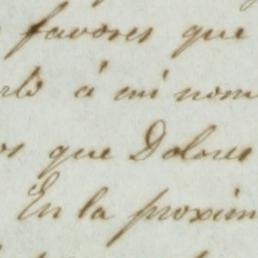 favores que
rlo á mi nom
os que Dolores
En la proxim